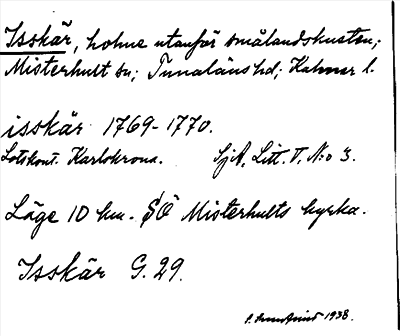 Isskär, holme utanför smålandskusten;
Misterhult sn; Tunaläns hd; Kalmar l.
isskär 1769-1770.
Lotskont. Karlskrona. SjA, Litt. V, No 3.
Läge 10 km. SÖ Misterhults kyrka.
Isskär G. 29.
1938.